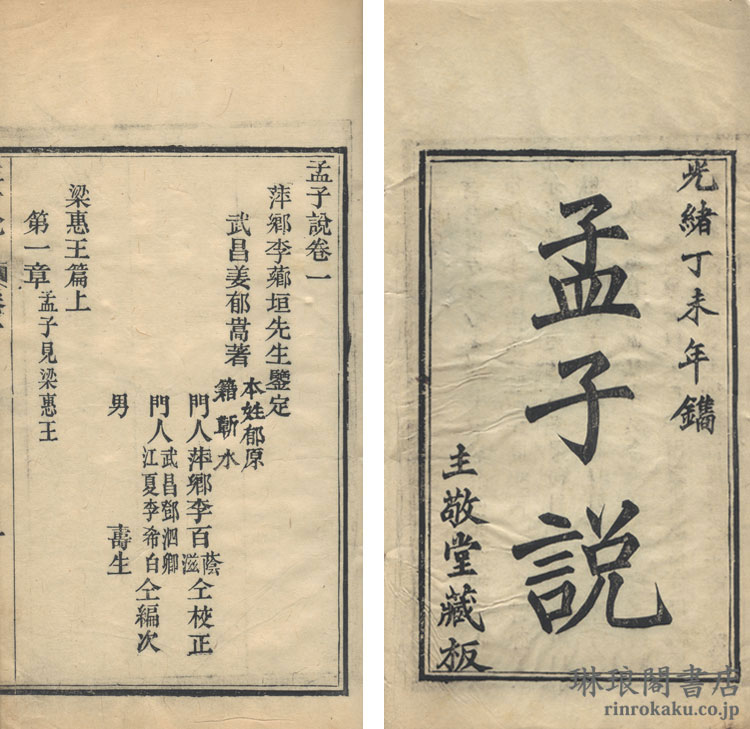 光緒丁未年鐫
孟子説
主敬堂藏板
孟子說卷一
萍鄉李薌垣先生鑒定
武昌姜郁嵩著
本姓郁原
籍蘄水
門人萍鄉李百蔭
滋
仝校正
門人武昌鄧泗卿
江夏李希白
仝編次
男 壽生
梁惠王篇上
第一章孟子見梁惠王
琳琅閣書店
rinrokaku.co.jp